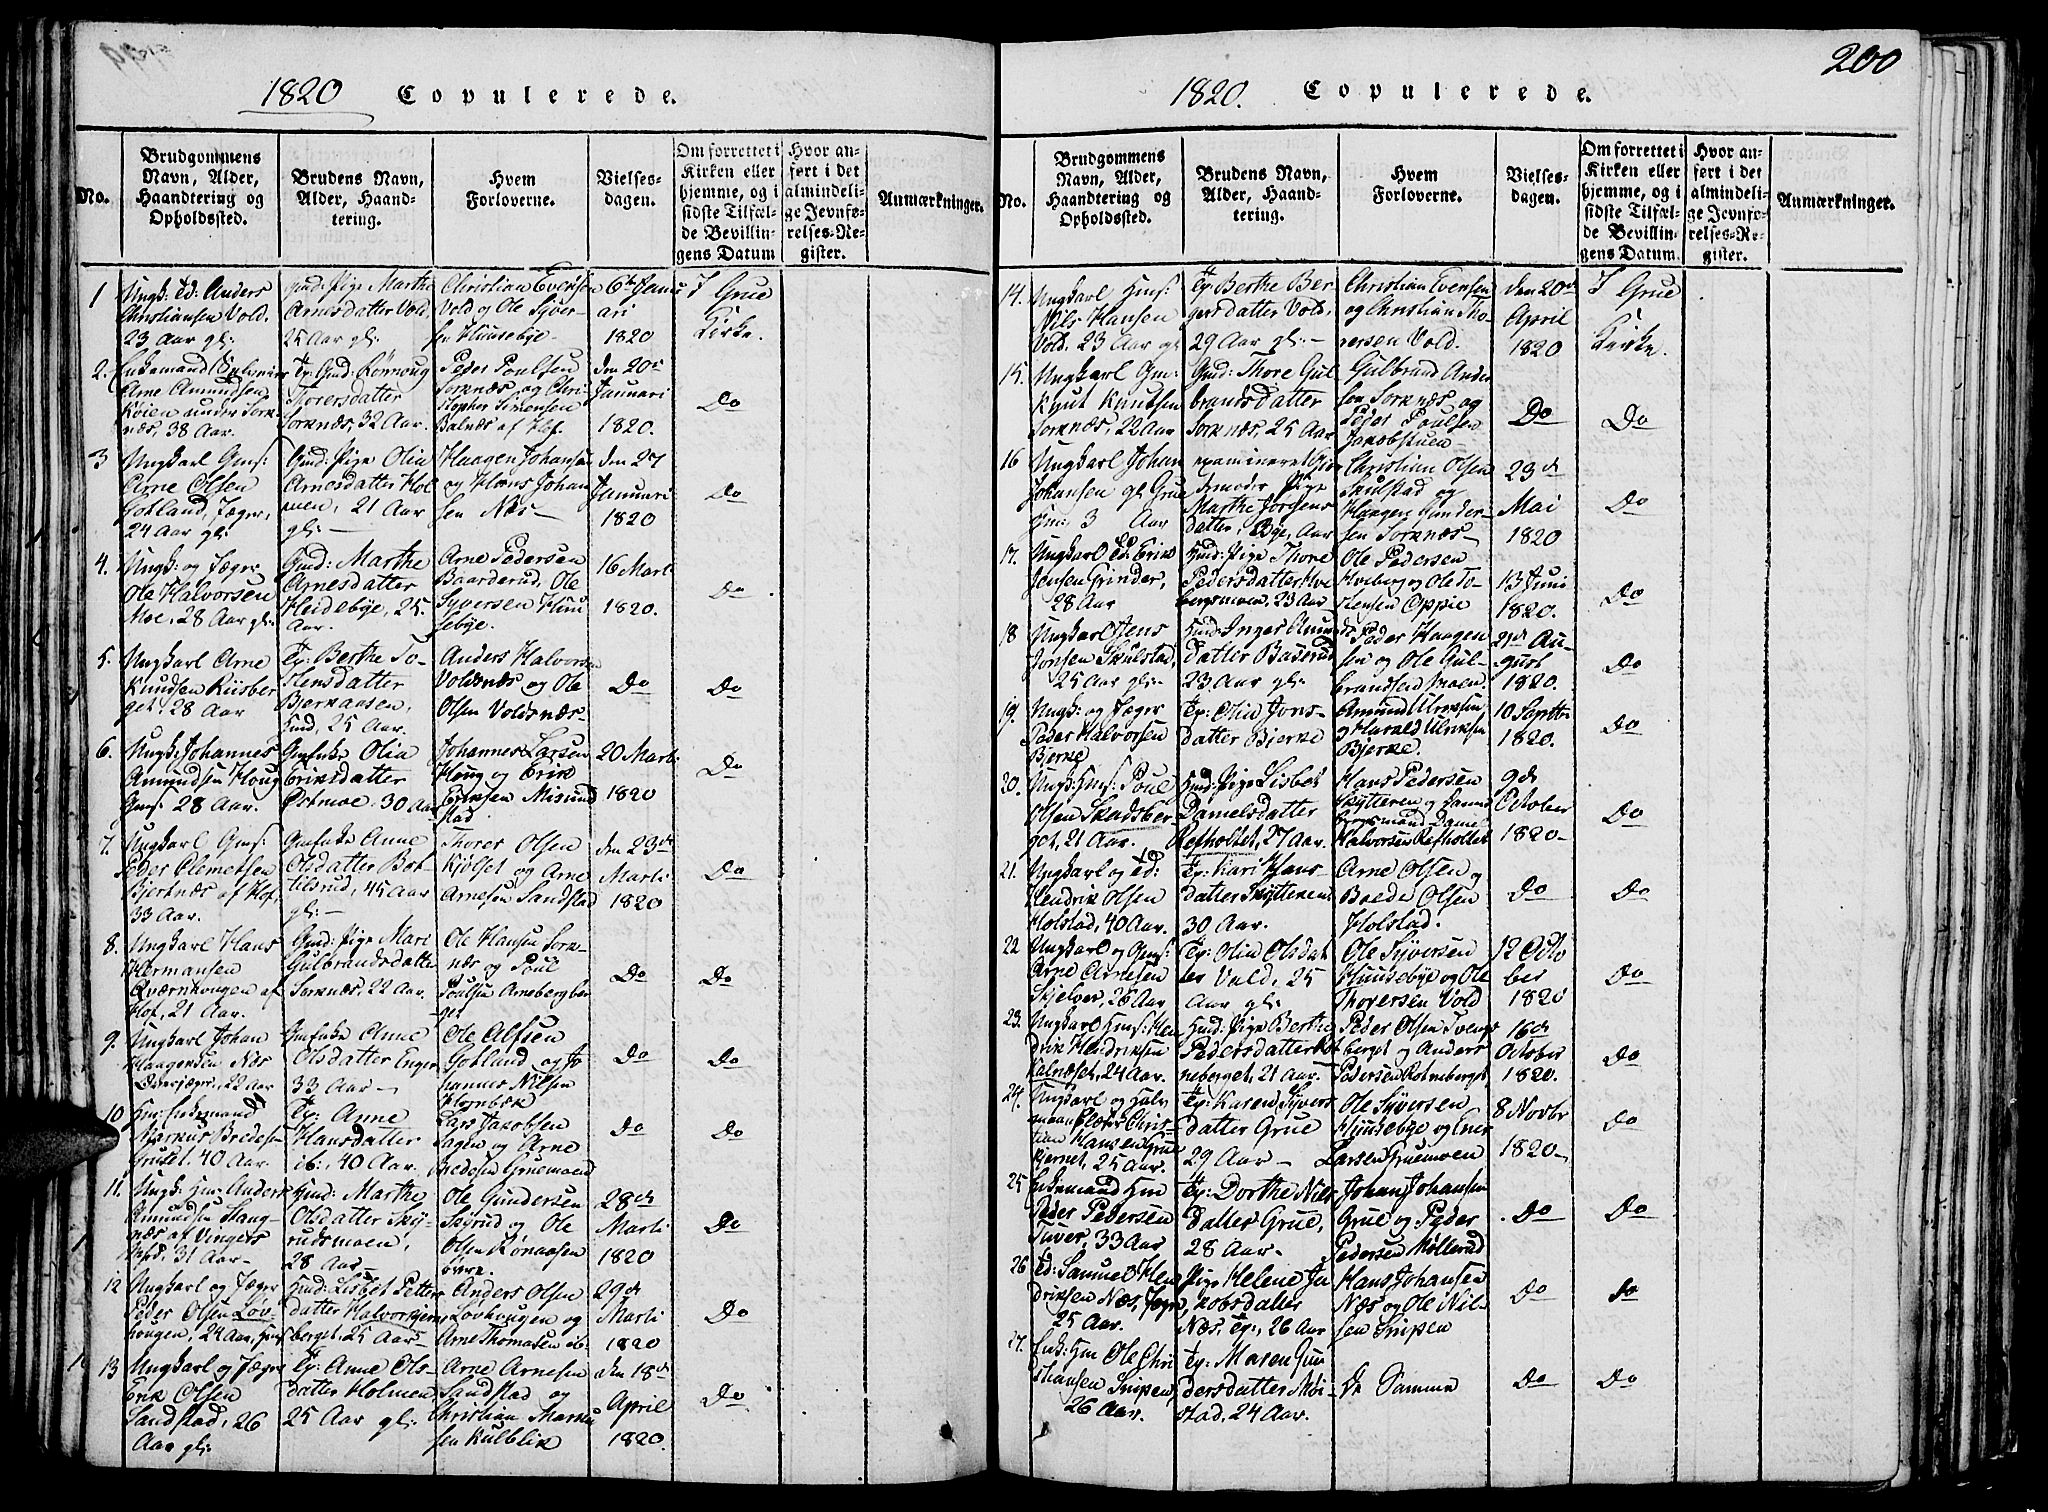 1820 Copulerede.
No.
Brudgommens
Navn, Alder,
Haandtering og
Opholdssted.
Brudens Navn,
Alder, Haand-
tering.
Hvem
Forloverne.
Vielses-
dagen.
Om forrettet i
Kirken eller
hjemme, og i
sidste Tilfæl-
de Bevillin-
gens Datum
Hvor an-
ført i det
almindeli-
ge Jevnfø-
relses-Re-
gister.
Anmærkninger.
1
Ungk: Ed: Anders
Christiansen Vold.
23 Aar gl:
Gmd: Pige Marthe
Arnesdatter Vold.
25 Aar gl:
Christian Evensen
Vold og Ole Syver-
sen Huusebye
6te Janu
ari
1820
I Grue
Kirke.
2.
Enkemand
Arne Amundsen
Køien under Sork-
næs, 38 Aar.
Tp: Gmd: Rønnoug
Thorersdatter
Sorknæs, 32 Aar.
Peder Poulsen
Sorknæs og Chri-
stopher Simensen
Balnæs af Hof.
den 20de
Januari
1820.
Do
3
Ungkarl Gms:
Arne Olsen
Gotland, Jæger,
24 Aar gl:
Gmd: Pige Olia
Arnesdatter Hol
men, 21 Aar
gl:
Haagen Johansen
og Hans Johan
sen Næs
den 27
Januari
1820
Do
4.
Ungk: og Jæger
Ole Halvorsen
Moe, 28 Aar gl:
Gmd: Marthe
Arnesdatter
Heidebye, 25.
Aar.
Arne Pedersen
Baarderud, Ole
Syversen Huu
sebye.
16 Marti
1820.
Do
5.
Ungkarl Arne
Knudsen Riisber
get. 28 Aar
Tp: Berthe To-
stensdatter
Bjerkaasen,
Hmd, 25 Aar.
Anders Halvorsen
Voldnæs og Ole
Olsen Voldsnæs
Do
Do
6.
Ungk: Johannes
Amundsen Houg
Gms: 28 Aar.
Gmenke Olia
Eriksdatter
Østmoe, 30 Aar
Johannes Larsen
Houg og Erik
Eriksen Misund
stad
20 Marti
1820
Do
7.
Ungkarl Gms:
Peder Clemetsen
Bjertnæs af Hof,
33 Aar.
Gmenke Anne
Olsdatter Bot-
tilsrud, 45 Aar
gl:
Thorer Olsen
Kjølset og Arne
Arnesen Sandstad
den 23de
Marti
1820
Do
8.
Ungkarl Hans
Hermansen
Qværnhougen af
Hof, 21 Aar.
Gmd: Pige Mari
Gulbrandsdatter
Sorknæs, 22 Aar.
Ole Hansen Sork-
næs og Poul
Poulsen Arneberg ber
get
Do
Do
9.
Ungkarl Johan
Haagensen Næs
Overjæger, 22 Aar
Gmenke Anne
Olsdatter Enger
33 Aar
Ole Alfsen
Gotland og Jo
hannes Nilsen
Hornbæk
Do
Do
10
Hm: Enkemand
Markus Bredesen
Gruset, 40 Aar.
Tp: Anne
Hansdatter
ib:, 40 Aar.
Lars Jacobsen
Sagen og Arne
Bredesen Gruemoend
Do
Do
11.
Ungk: Hm: Anders
Amundsen Hang-
næs af Vingers
31 Aar
Hmd: Marthe
Olsdatter Sky-
rudsmoen,
28 Aar
Ole Gundersen
Skyrud og Ole
Olsen Rønaasen
øvre.
28de
Marti
1820
Do
12
Ungkarl og Jæger
Peder Olsen Løv-
hougen, 24 Aar, Hms
Hmd: Lisbet Petters
datter Halvorhjem,
berget, 25 Aar
Anders Olsen
Løvhougen og
Arne Thomasen ib
29de
Marti
1820
Do
13
Ungkarl og Jæger
Erik Olsen
Sandstad, 26
Aar gl:
Tp: Anne Ols-
datter Holmen
25 Aar gl:
Arne Arnesen
Sandstad og
Christian Marku
sen Kulblik
den 18de
April
1820.
Do
200
1820. Copulerede.
No.
Brudgommens
Navn, Alder,
Haandtering og
Opholdssted.
Brudens Navn,
Alder, Haand-
tering.
Hvem
Forloverne.
Vielses-
dagen.
Om forrettet i
Kirken eller
hjemme, og i
sidste Tilfæl-
de Bevillin-
gens Datum.
Hvor an-
ført i det
almindeli-
ge Jevnfø-
relses-Re-
gister.
Anmærkninger.
14.
Ungkarl Hms:
Nils Hansen
Vold. 23 Aar gl
Tp: Berthe Ber-
gersdatter Vold,
29 Aar gl:
Christian Evensen
og Christian Tho-
rersen Vold.
den 20de
April
1820
I Grue
Kirke.
15.
Ungkarl Gm:
Knut Knudsen
Sorknæs, 22 Aar
Gmd: Thore Gul
brandsdatter
Sorknæs, 25 Aar
Gulbrand Ander
sen Sorknæs og
Peder Poulsen
Jakobstuen
Do
Do
16
Ungkarl Johan
Johansen gl Grue
Hm: 3 Aar
examineret Gior
demoder Pige
Marthe Jørgens
datter, Bye, Aar
Christian Olsen
Skulstad og
Haagen Gunder-
sen Sorknæs
23de
Mai
1820
Do
17.
Ungkarl Ed: Erik
Jensen Grinder,
28 Aar
Hmd: Pige Thore
Pedersdatter Hve
bergsmoen, 23 Aar
Ole Pedersen
Hveberg og Ole To-
stensen Oppie
13 Juni
1820.
Do
18
Ungkarl Jens
Jonsen Skulstad,
25 Aar gl:
Hmd: Inger Amunds
datter Baserud
23 Aar gl:
Peder Haagen
sen og Ole Gul-
brandsen Moen.
21de Au-
gust
1820.
Do
19.
Ungk: og Jæger
Peder Halvorsen
Bjerke
Tp: Olia Jons-
datter Bjerke
Amund Ulriksen
og Harald Ulriksen
Bjerke.
10 Septbr
1820.
Do
20.
Ungk: Hms: Poul
Olsen Skadsber
get, 21 Aar.
Hmd: Pige Lisbet
Danielsdatter
Refholtet, 27 Aar.
Hans Pedersen
Skytteren og
Daniel
Halvorsen Refholtet
9de
October
1820
Do
21.
Ungkarl og Ed:
Hendrik Olsen
Holstad, 40 Aar.
Tp: Kari Hans-
datter Skytteren
30 Aar.
Arne Olsen og
Brede Olsen
Holstad.
Do
Do
22
Ungkarl og Gms:
Arne Arnesen
Skjelver, 26 Aar
Tp: Olia Olsdat
ter Vold, 25
Aar gl:
Ole Syversen
Huusebye og Ole
Thorersen Vold
12 Octo
ber
1820
Do
23.
Ungkarl Hms: Hen
drik Hendriksen
Kalnæset, 24 Aar.
Hmd: Pige Berthe
Pedersdatter Rot
neberget, 21 Aar.
Peder Olsen Svengs
berget og Anders
Pedersen Rotneberget
16de
October
1820.
Do
24.
Ungkarl og Halv
mand Elefer Chris-
tian Hansen Grue
kjernet, 25 Aar.
Tp: Karen Syvers
datter Grue
29 Aar
Ole Syversen
Huusebye og Ener
Larsen Gruemoen
8 Novbr
1820
Do
25
Enkemand Hm
Peder Pedersen
Tuver, 33 Aar
Tp: Dorthe Nils
datter Grue,
28 Aar
Johan Johansen
Grue og Peder
Pedersen Møllerud
Do
Do
26
Ed: Samuel Hen
driksen Næs, Jægr
25 Aar.
Pige Helene Ja
kobsdatter
Næs, Tp:, 26 Aar
Hans Johansen
Næs og Ole Nil-
sen Snipen
Do
Do
27.
Enk: Hm Ole Chri
stiansen Snipen,
26 Aar.
Tp: Maren Gun
dersdatter Møi-
stad, 24 Aar.
De Samme
Do
Do